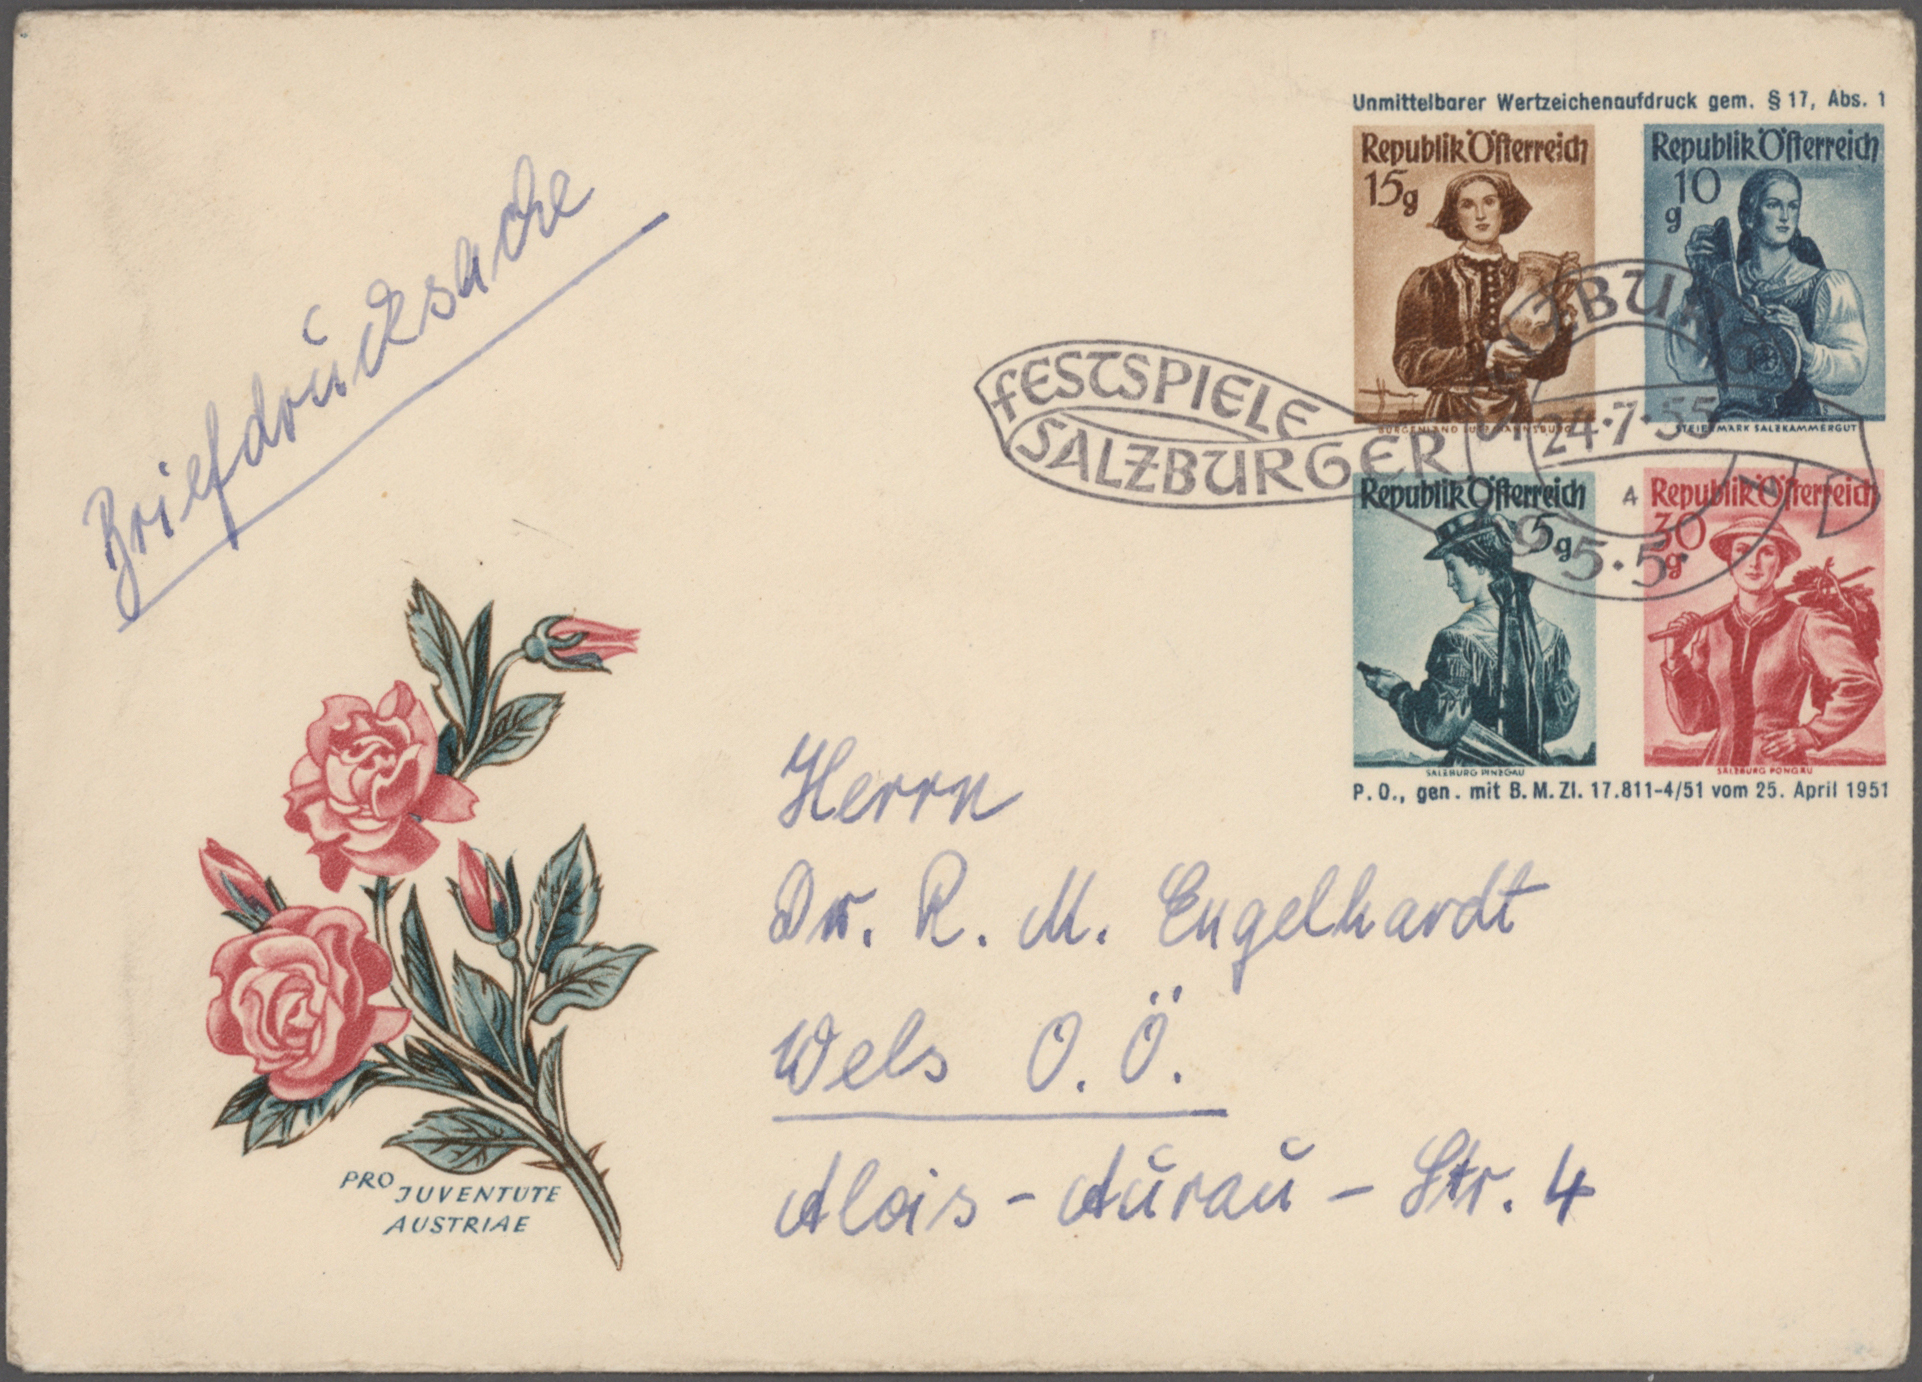 Briefdrucksache
Unmittelbarer Wertzeichenaufdruck gem. § 17, Abs. 1
Republik Österreich
15g
BURGENLAND LUTZMANNSBURG
Republik Österreich
10 g
STEIERMARK SALZKAMMERGUT
FESTSPIELE
SALZBURGER
SALZBURG
24·7·55
A
5·5·
Republik Österreich
5g
SALZBURG PINZGAU
Republik Österreich
30 g
SALZBURG PONGAU
P. O., gen. mit B. M. Zl. 17.811-4/51 vom 25. April 1951
Herrn
Dr. R. M. Engelhardt
Wels O. Ö.
Alois-Aŭraŭ-Str. 4
PRO
JUVENTUTE
AUSTRIAE